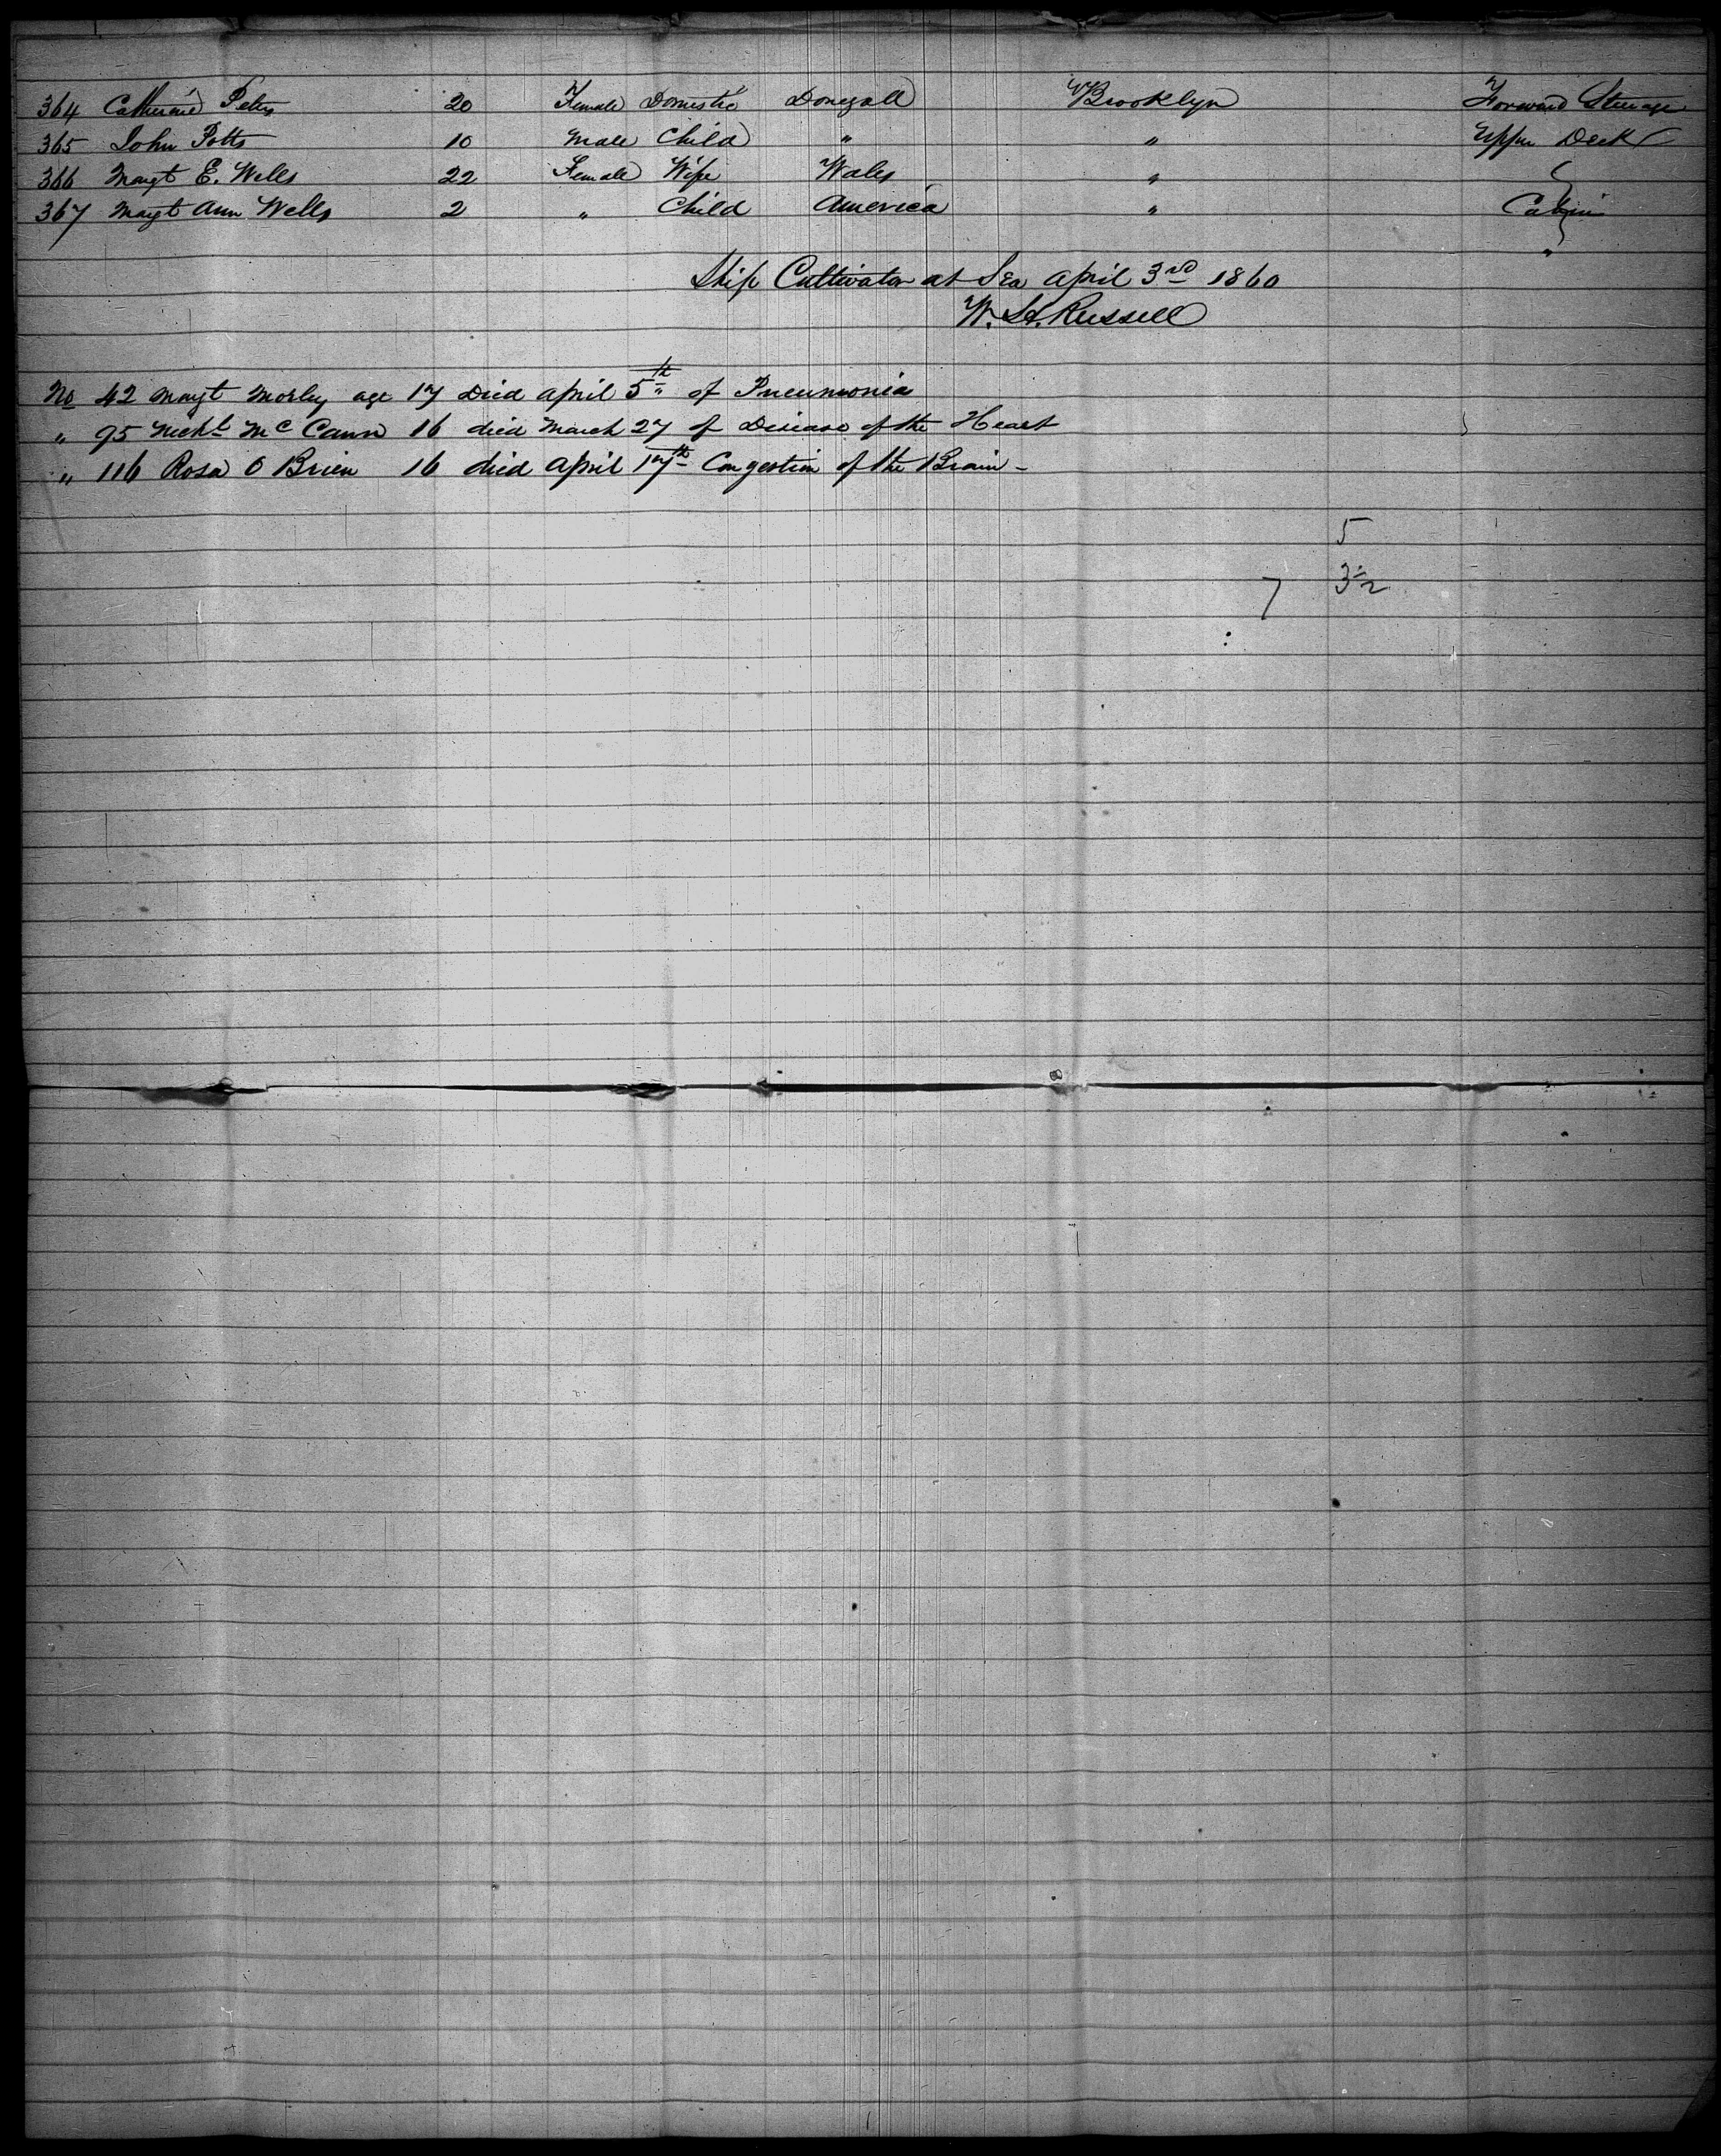 364 Catherine Peters 20 Female Domestic Donegall Brooklyn Forward Steerage
365 John Potts 10 Male Child " " Upper Deck
366 Margt E. Wells 22 Female Wife Wales "
367 Margt Ann Wells 2 " Child America " Cabin
"
Ship Cultivator at Sea April 3rd 1860
W. H. Russell
No 42 Margt Morley age 17 Died April 5th of Pneumonia
" 95 Mc Cann 16 died March 27 of Disease of the Heart
" 116 Rosa O Brien 16 died April 17th Congestion of the Brain -
5
7